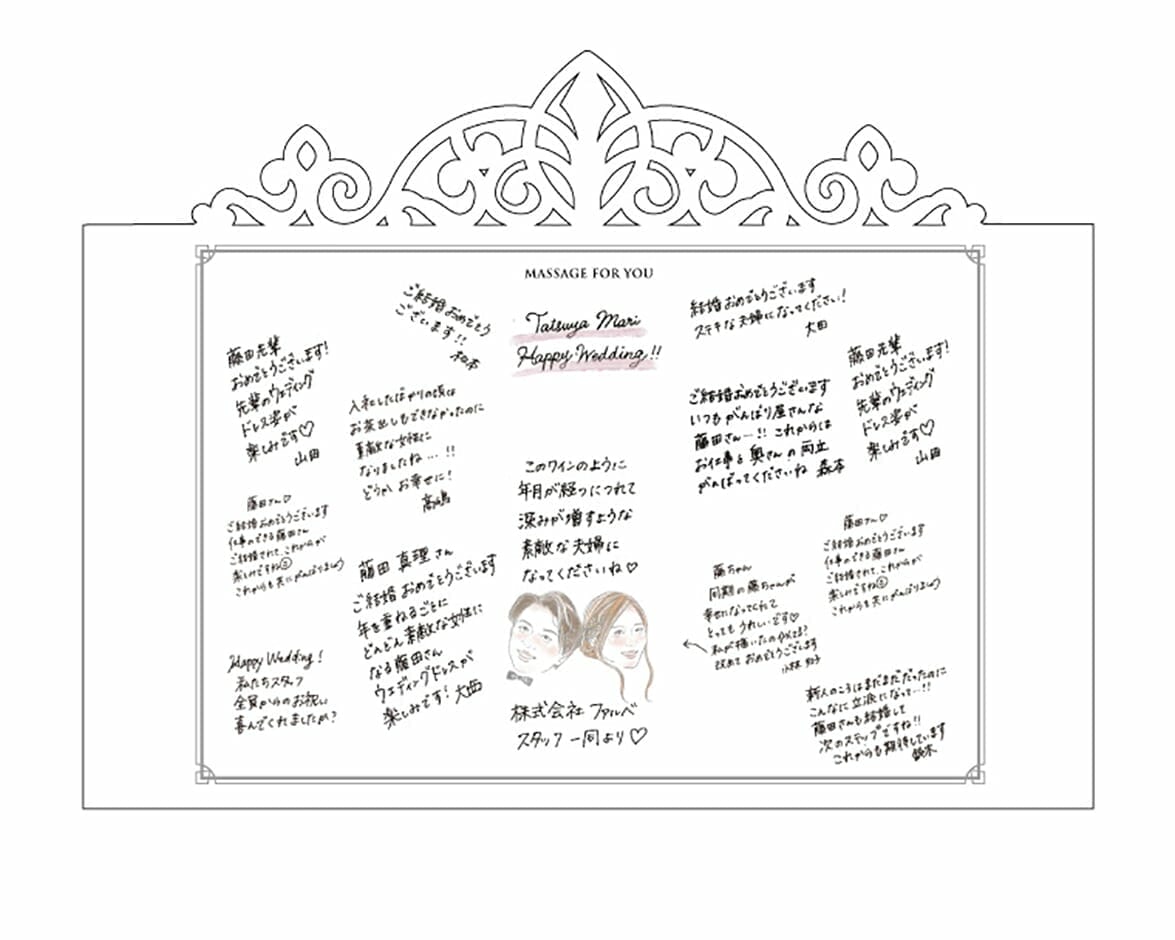 MASSAGE FOR YOU
Tatsuya Mari
Happy Wedding!!
ご結婚おめでとう
ございます!!
結婚おめでとうございます
ステキな夫婦になってください!
大田
藤田先輩
おめでとうございます!
先輩のウェディング
ドレス姿が
楽しみです♡
山田
入社したばかりの頃は
お茶出しもできなかったのに
素敵な女性に
なりましたね…!!
どうか お幸せに!
高嶋
ご結婚おめでとうございます
いつもがんばり屋さんな
藤田さん…!! これからは
お仕事と奥さんの両立
がんばってくださいね 森本
藤田先輩
おめでとうございます!
先輩のウェディング
ドレス姿が
楽しみです♡
山田
このワインのように
年月が経つにつれて
深みが増すような
素敵な夫婦に
なってくださいね♡
藤田さん♡
ご結婚おめでとうございます
仕事のできる藤田さん
ご結婚されて、これからが
楽しみですね
これからも共にがんばりましょう
藤田 真理さん
ご結婚おめでとうございます
年を重ねるごとに
どんどん素敵な女性に
なる藤田さん
ウェディングドレスが
楽しみです! 大西
藤ちゃん
同期の藤ちゃんが
幸せになってくれて
とってもうれしいです♡
私が描いたの似てる?
改めておめでとうございます
小林
藤田さん♡
ご結婚おめでとうございます
仕事のできる藤田さん
ご結婚されて、これからが
楽しみですね
これからも共にがんばりましょう
Happy Wedding!
私たちスタッフ
全員からのお祝い
喜んでくれましたか?
株式会社 ファルベ
スタッフ一同より♡
新人のころはまだまだだったのに
こんなに立派になって…!!
藤田さんも結婚して
次のステップですね!!
これからも期待しています
鈴木